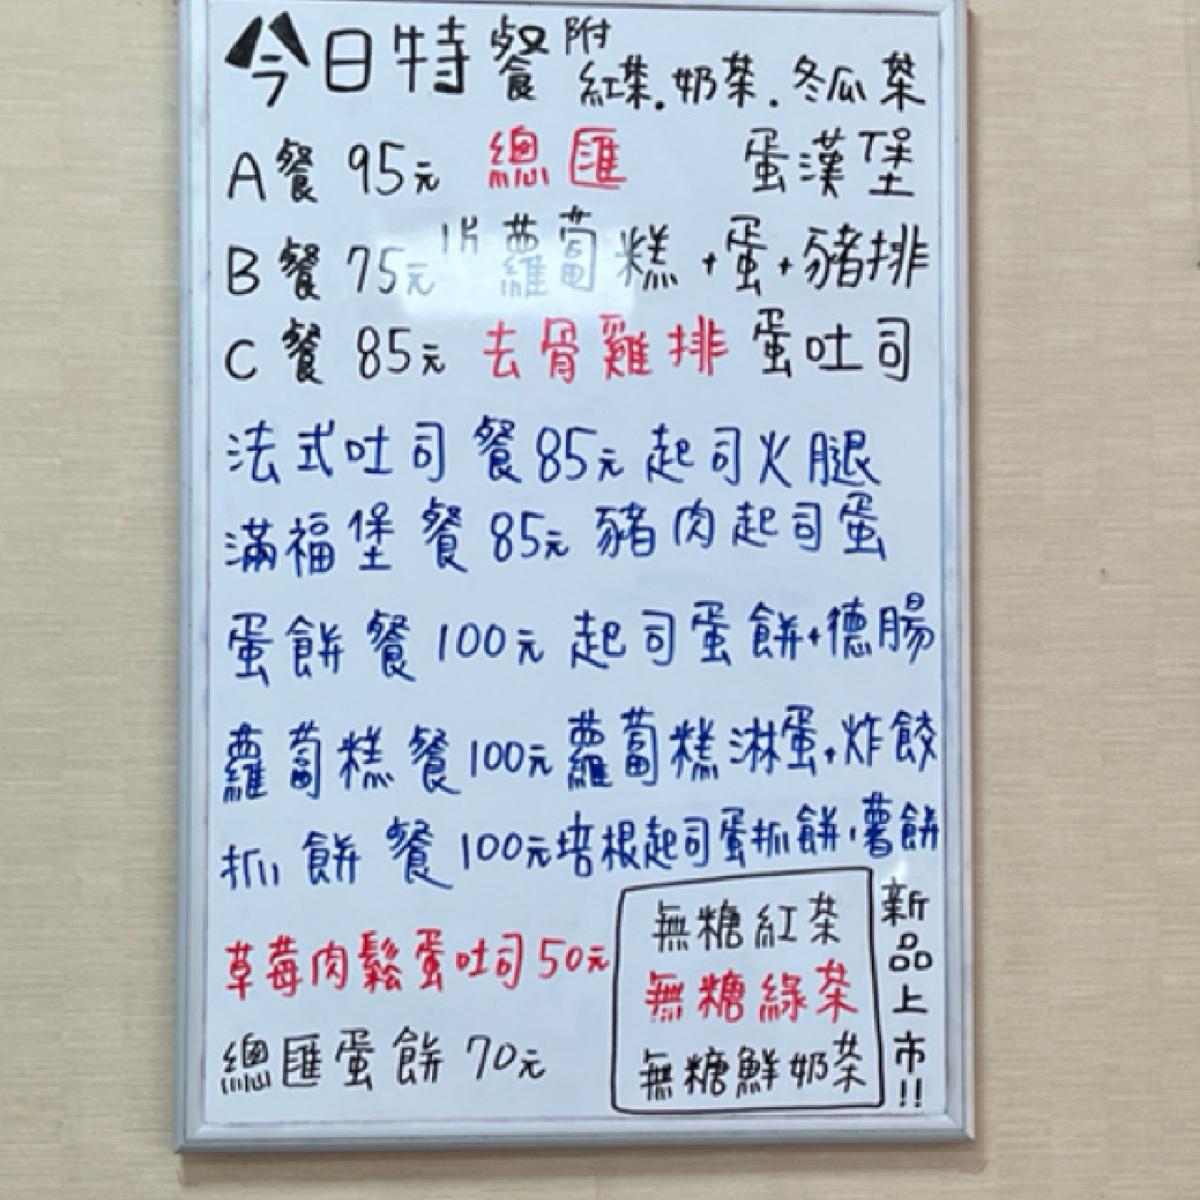 今日特餐 附 紅茶.奶茶.冬瓜茶
A餐 95元 總匯 蛋漢堡
B餐 75元 1片蘿蔔糕+蛋+豬排
C餐 85元 去骨雞排 蛋吐司
法式吐司餐 85元 起司火腿
滿福堡餐 85元 豬肉起司蛋
蛋餅餐 100元 起司蛋餅+德腸
蘿蔔糕餐 100元 蘿蔔糕淋蛋+炸餃
抓餅餐 100元 培根起司蛋抓餅+薯餅
草莓肉鬆蛋吐司 50元
總匯蛋餅 70元
無糖紅茶
無糖綠茶
無糖鮮奶茶
新品上市!!